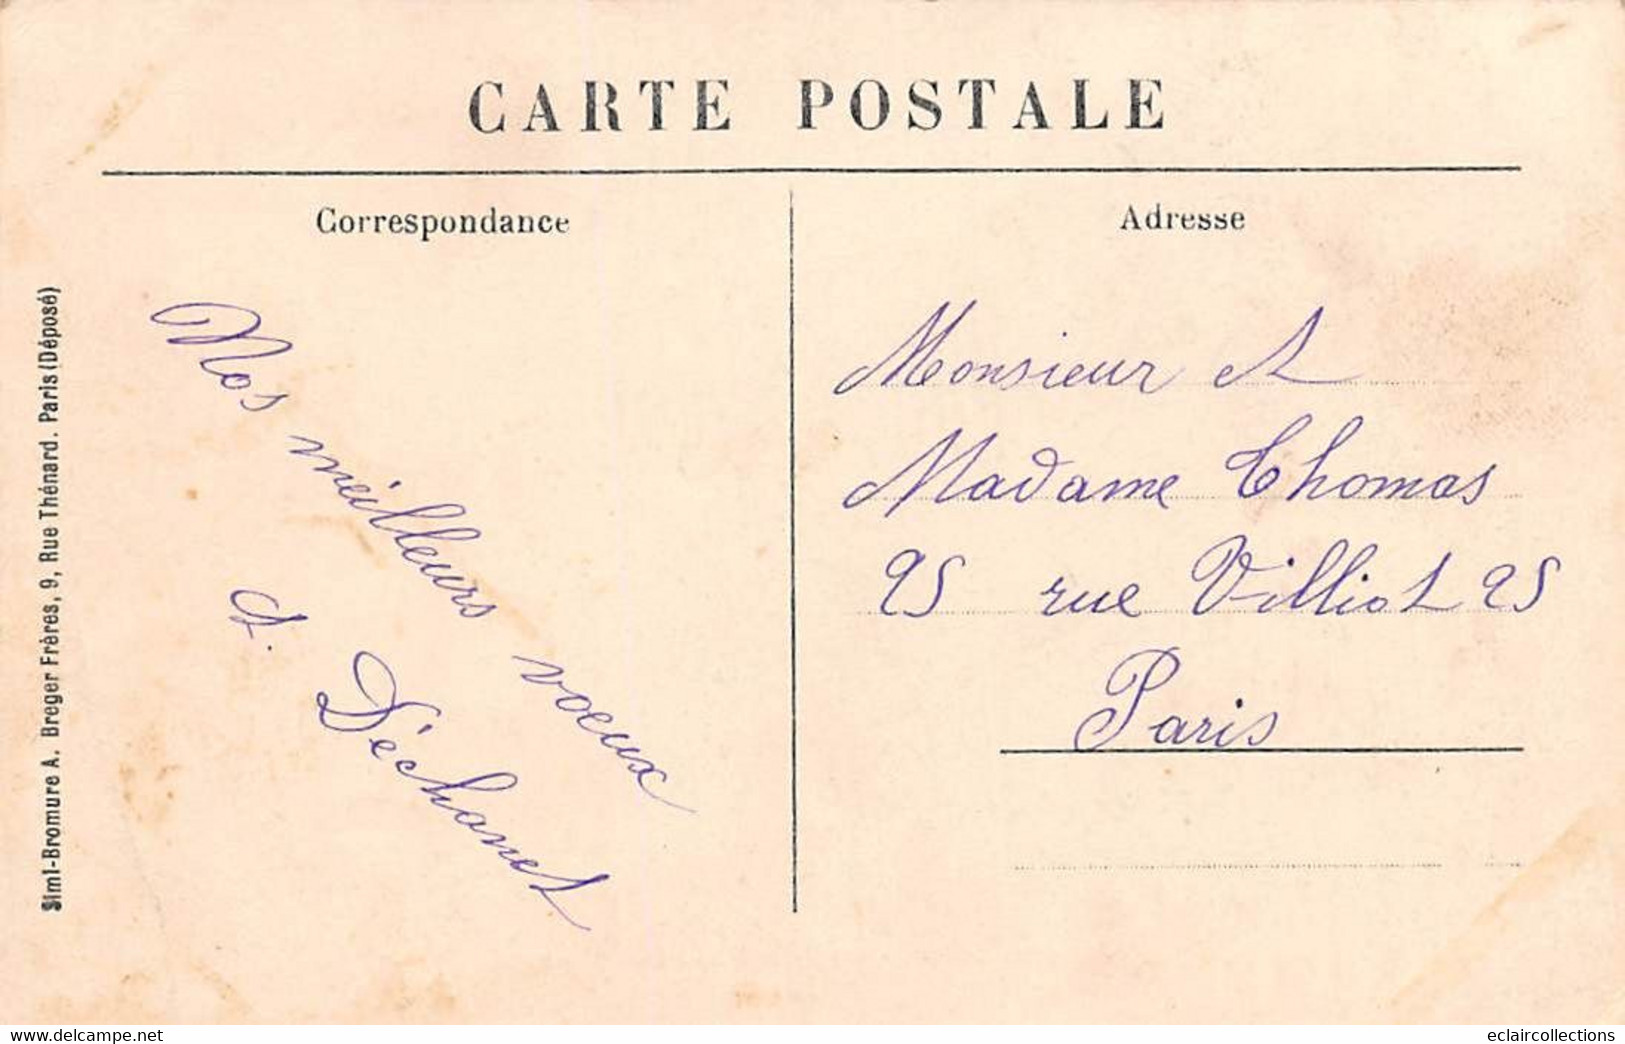 CARTE POSTALE
Correspondance
Adresse
Simi-Bromure A. Breger Frères, 9, Rue Thénard. Paris (Déposé)
Nos meilleurs voeux
Déchanet
Monsieur et
Madame Thomas
25 rue Villiot 25
Paris
www.delcampe.net
eclaircollections